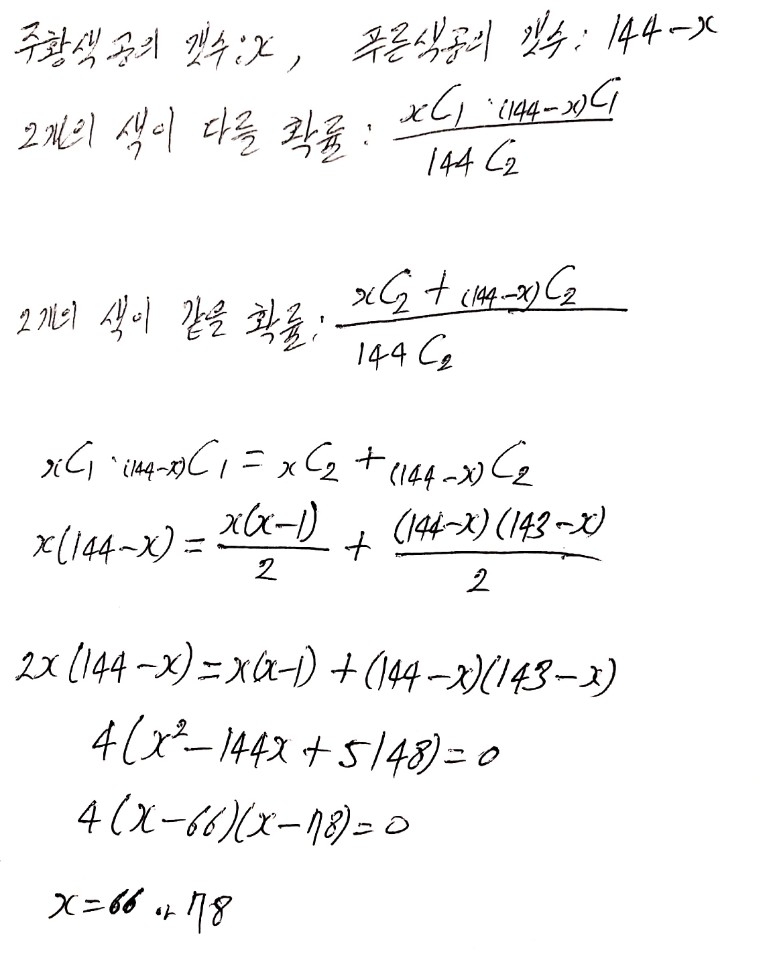 주황색 공의 갯수: x, 푸른색공의 갯수: 144-x
2개의 색이 다를 확률: xC1·(144-x)C1 / 144C2
2개의 색이 같을 확률: xC2 + (144-x)C2 / 144C2
xC1·(144-x)C1 = xC2 + (144-x)C2
x(144-x) = x(x-1)/2 + (144-x)(143-x)/2
2x(144-x) = x(x-1) + (144-x)(143-x)
4(x²-144x+5148)=0
4(x-66)(x-78)=0
x=66 or 78